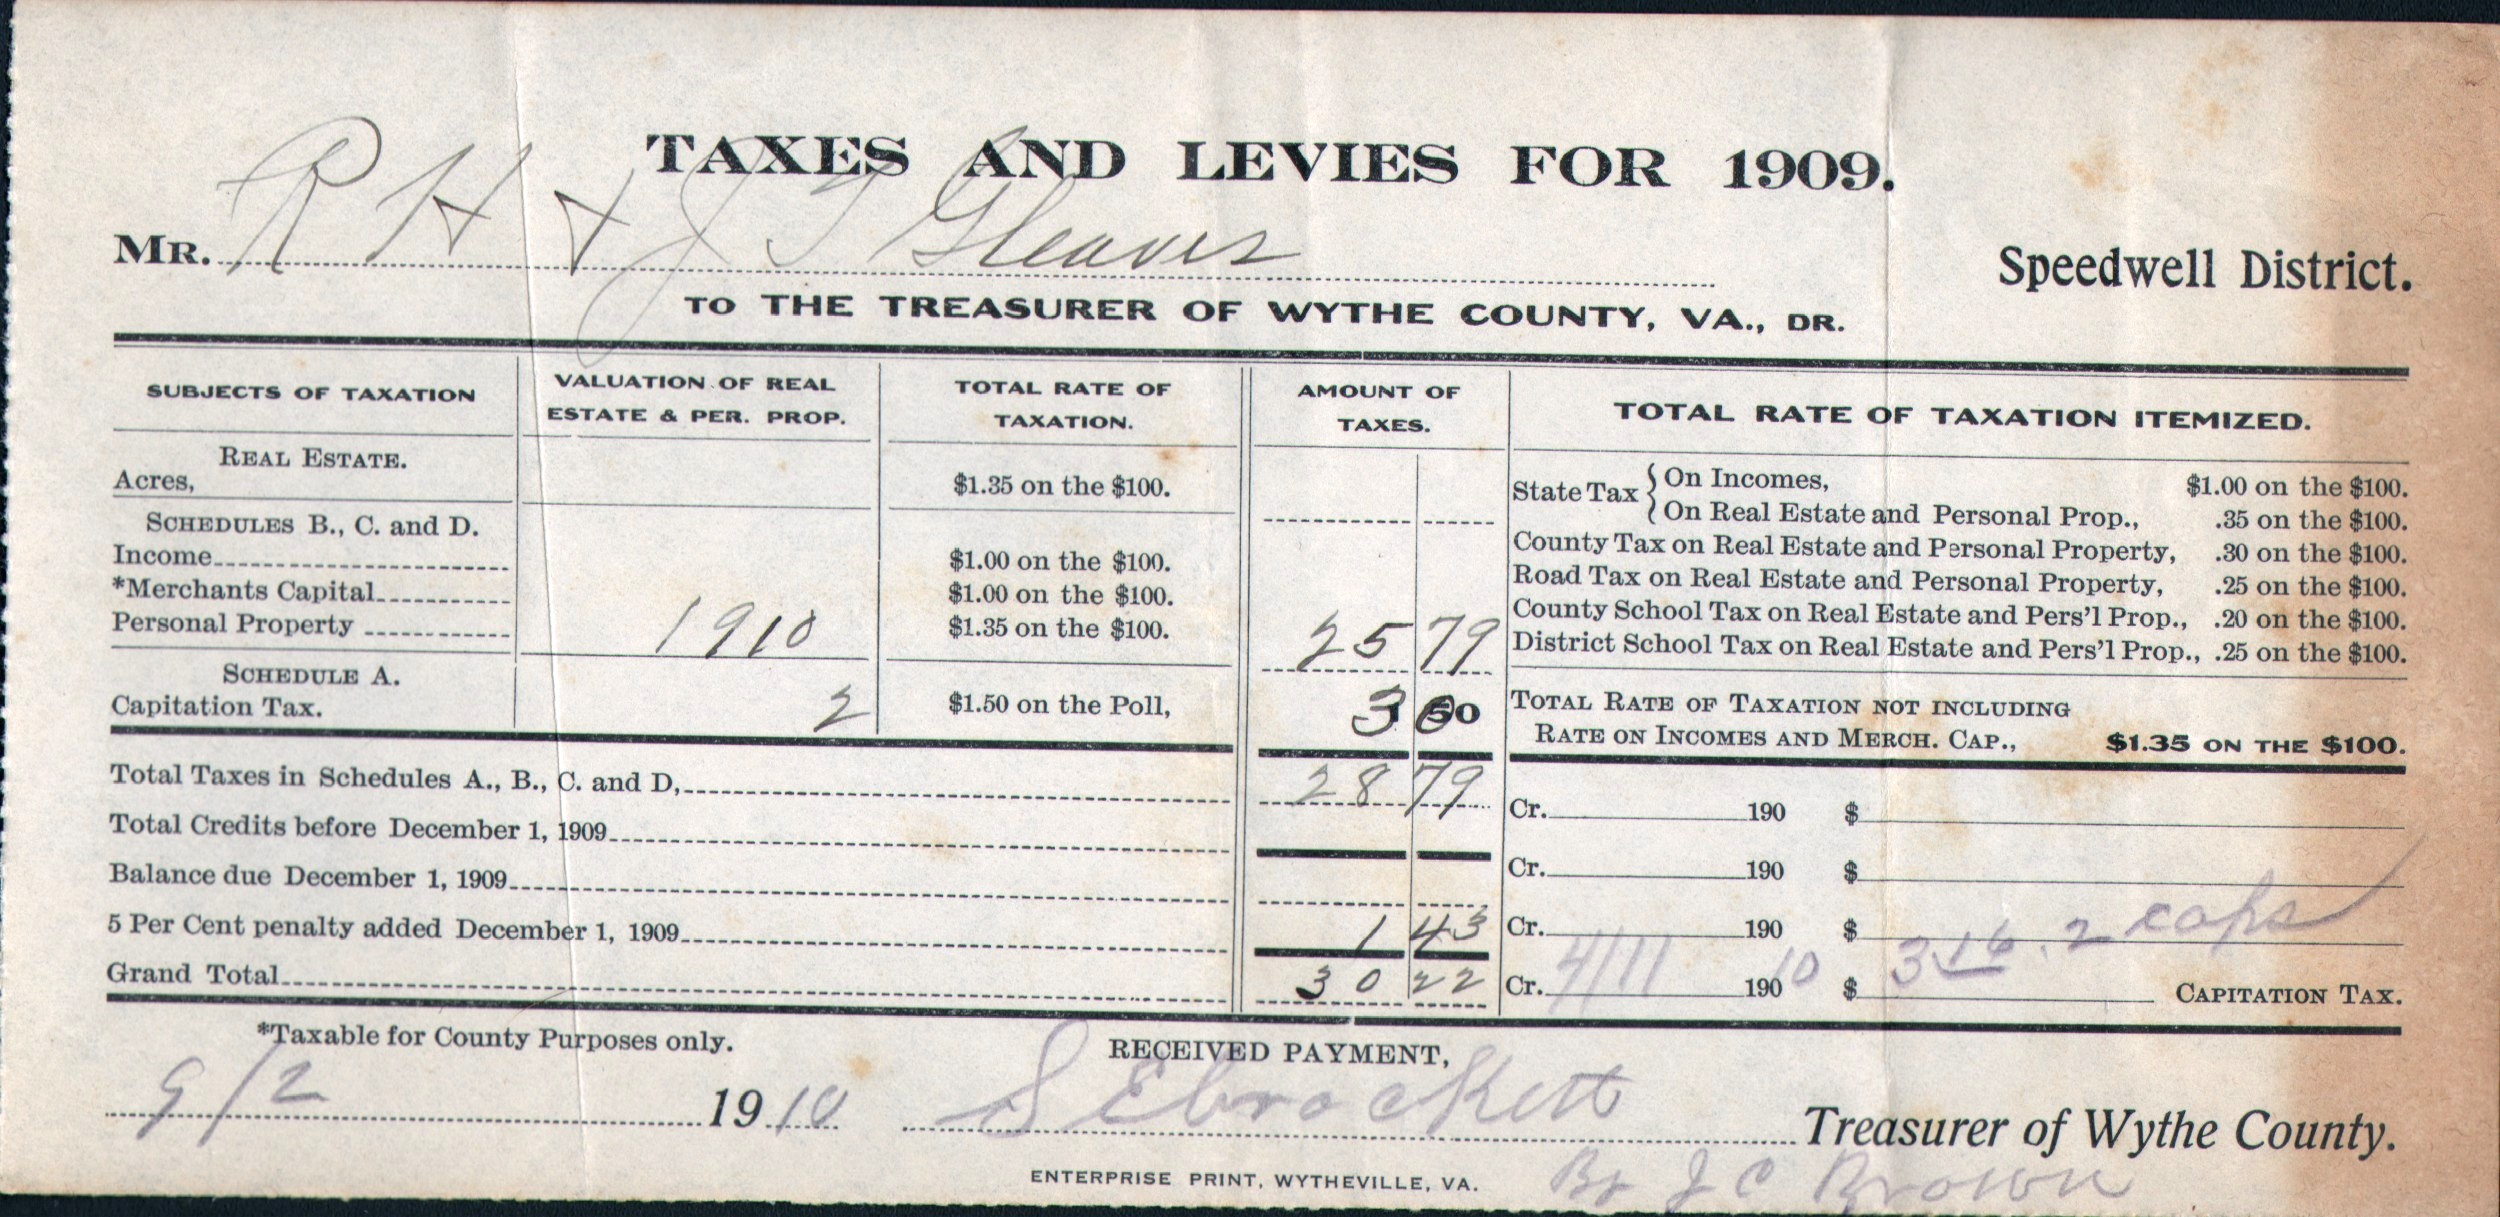 TAXES AND LEVIES FOR 1909.
MR. R H & J T Gleaves
Speedwell District.
TO THE TREASURER OF WYTHE COUNTY, VA., DR.
SUBJECTS OF TAXATION
VALUATION OF REAL
ESTATE & PER. PROP.
TOTAL RATE OF
TAXATION.
AMOUNT OF
TAXES.
TOTAL RATE OF TAXATION ITEMIZED.
REAL ESTATE.
Acres,
$1.35 on the $100.
SCHEDULES B., C. and D.
Income
$1.00 on the $100.
*Merchants Capital
$1.00 on the $100.
Personal Property 1910 $1.35 on the $100. 25 79
SCHEDULE A.
Capitation Tax. 2 $1.50 on the Poll, 3 0
State Tax { On Incomes, $1.00 on the $100.
On Real Estate and Personal Prop., .35 on the $100.
County Tax on Real Estate and Personal Property, .30 on the $100.
Road Tax on Real Estate and Personal Property, .25 on the $100.
County School Tax on Real Estate and Pers'l Prop., .20 on the $100.
District School Tax on Real Estate and Pers'l Prop., .25 on the $100.
TOTAL RATE OF TAXATION NOT INCLUDING
RATE ON INCOMES AND MERCH. CAP., $1.35 ON THE $100.
Total Taxes in Schedules A., B., C. and D, 28 79
Total Credits before December 1, 1909
Balance due December 1, 1909
5 Per Cent penalty added December 1, 1909 1 43
Grand Total 30 22
Cr. 190 $
Cr. 190 $
Cr. 190 $
Cr. 4/11 190 10 $ 3 16 . 2 caps CAPITATION TAX.
*Taxable for County Purposes only.
RECEIVED PAYMENT,
9/2 1910 S E Crockett Treasurer of Wythe County.
By J C Brown
ENTERPRISE PRINT, WYTHEVILLE, VA.